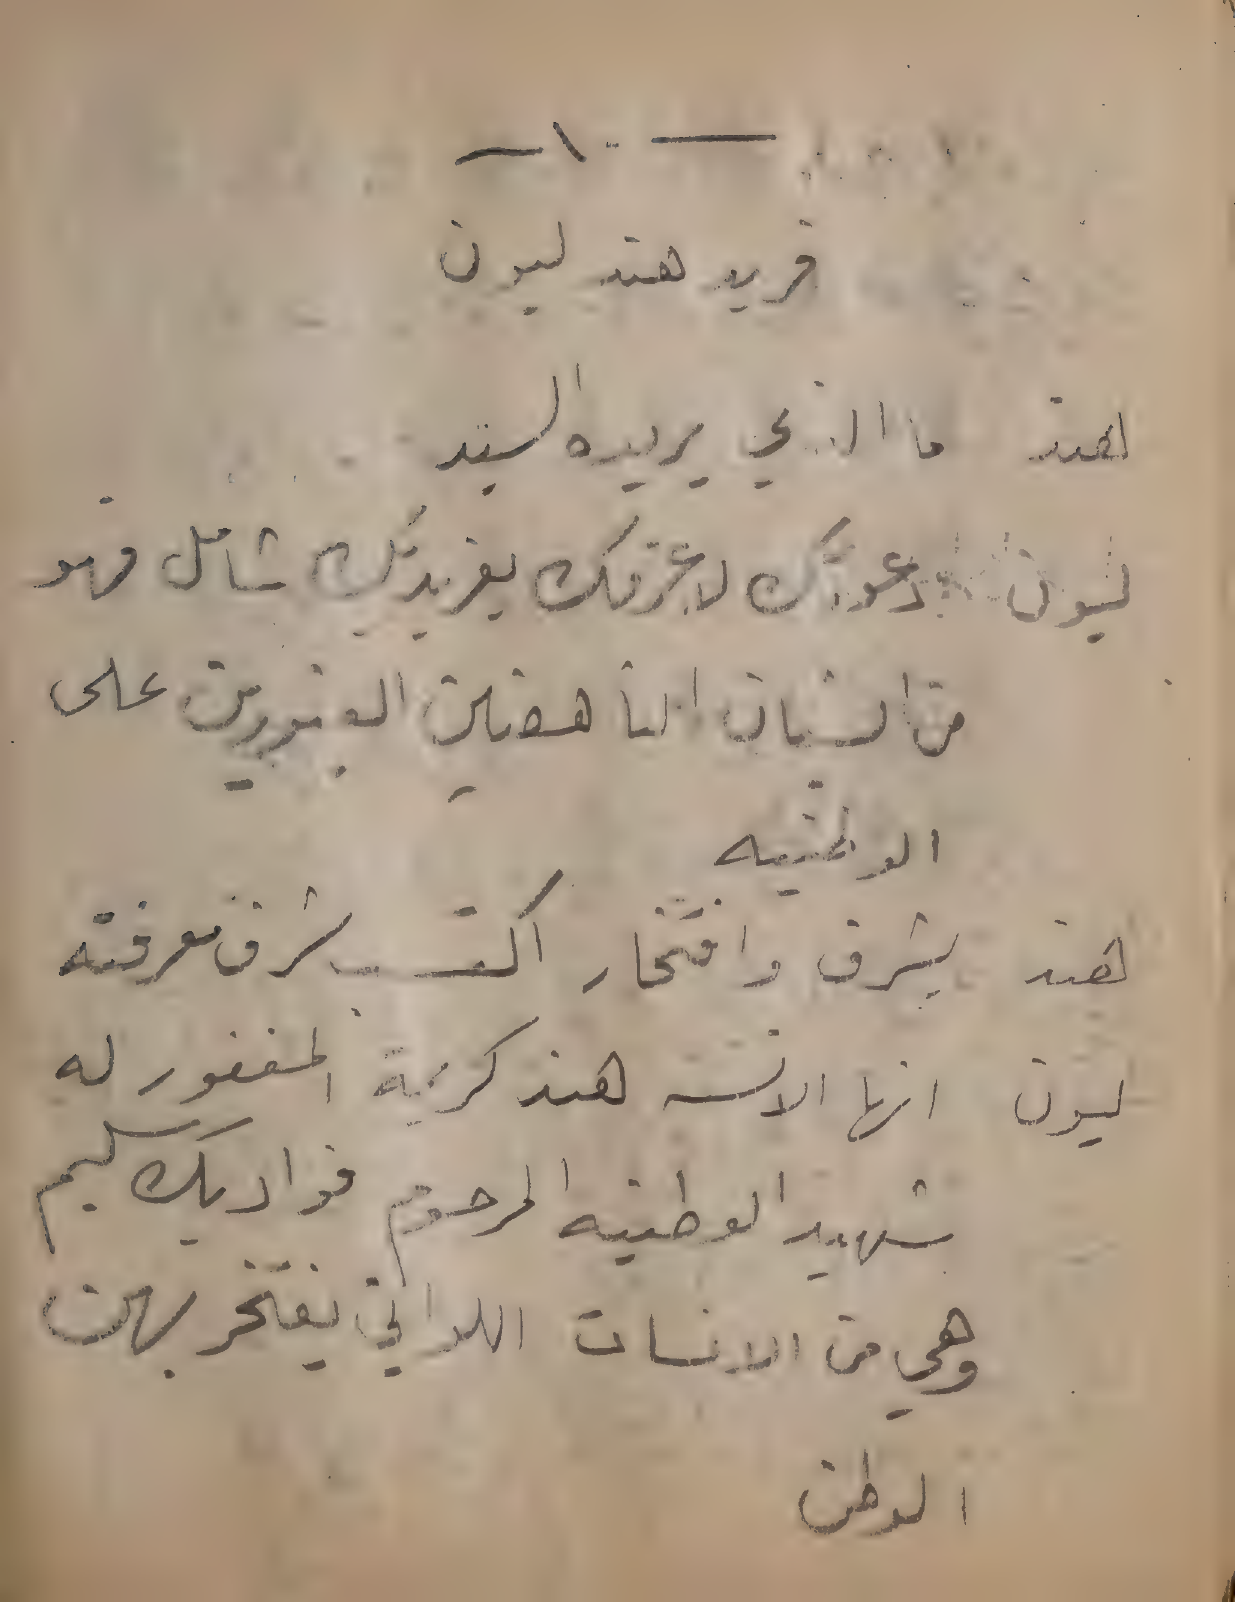 — ١٠ —
فريد هند ليون
هند ما الذي يريده السيد
ليون دعوتك لاعرفك بفريد بك شامل فهو
من الشبان الناهضين الغيورين على
الوطنيه
هند بشرف وافتخار اكتسب شرف معرفته
ليون انها الانسه هند كريمة المغفور له
شهيد الوطنيه المرحوم فواد بك سليم
وهي من الانسات اللواتي يفتخر بهن
الوطن